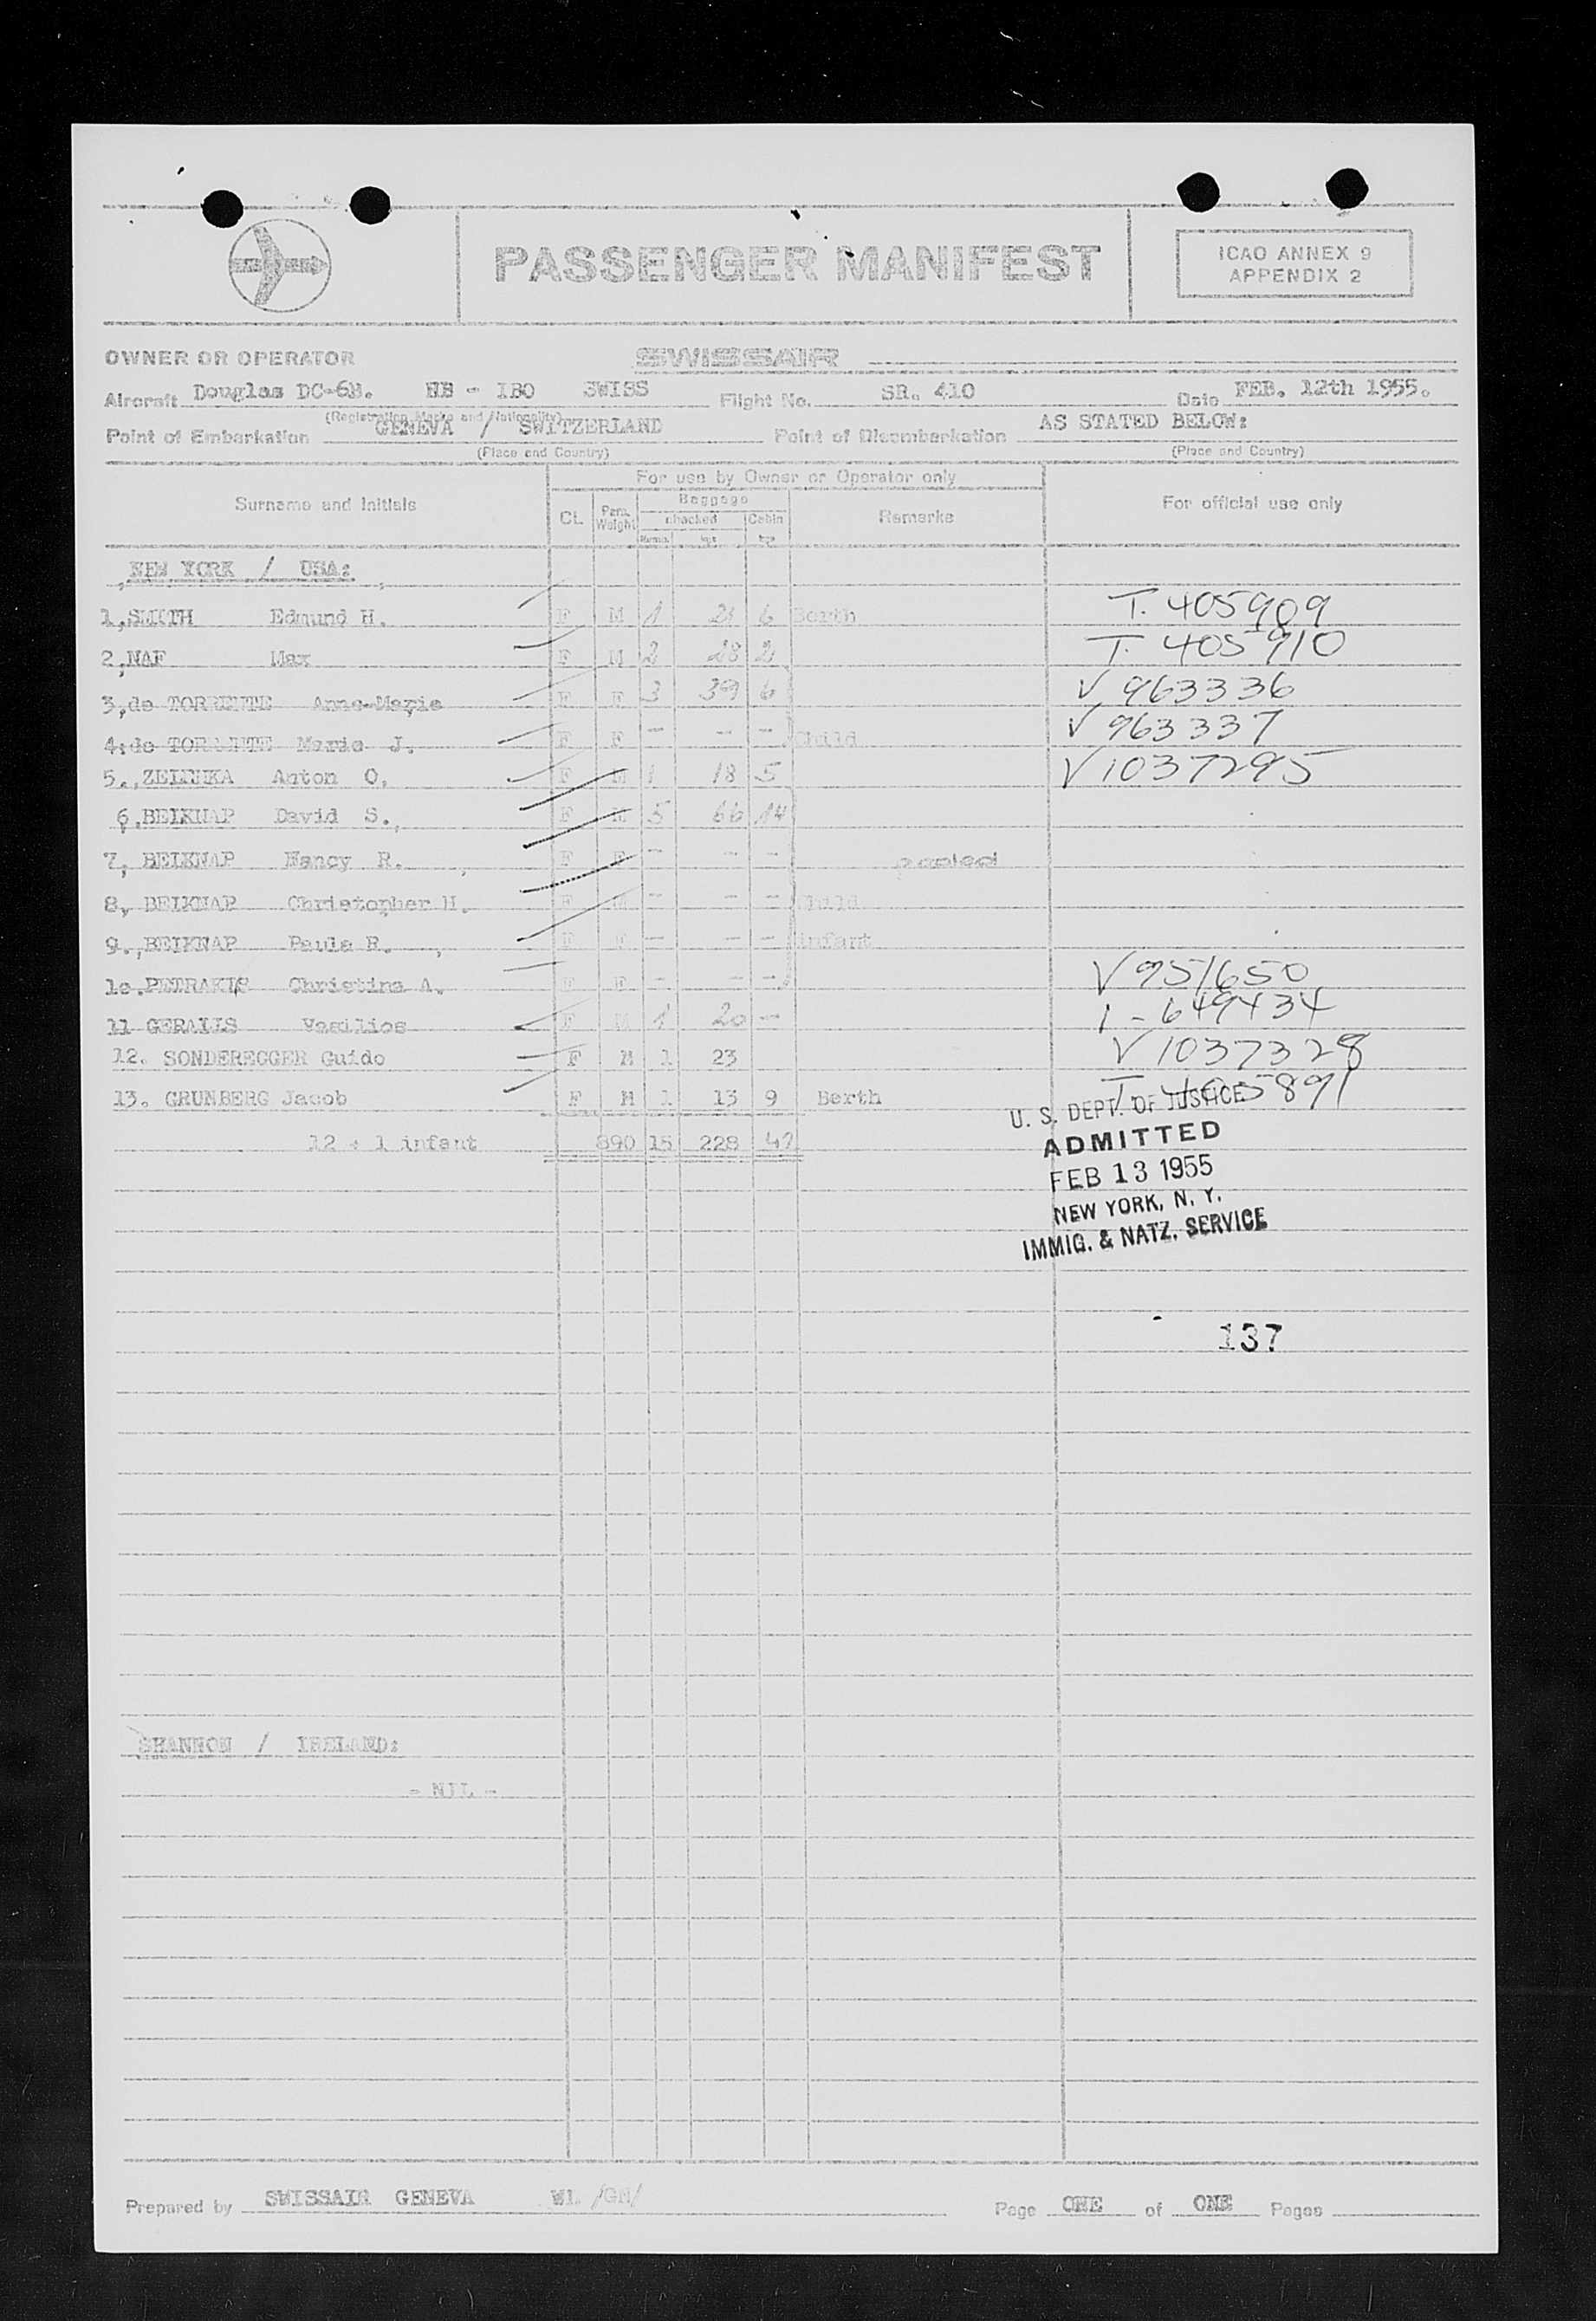 PASSENGER MANIFEST
ICAO ANNEX 9
APPENDIX 2
OWNER OR OPERATOR SWISSAIR
Aircraft Douglas DC-6B. HB - IBO SWISS Flight No. SR. 410 Date FEB. 12th 1955.
(Registration Marks and Nationality)
Point of Embarkation GENEVA / SWITZERLAND Point of Disembarkation AS STATED BELOW:
(Place and Country) (Place and Country)
Surname and Initials For use by Owner or Operator only For official use only
CL Pers. Weight Baggage checked Cabin Remarks
kgs kgs
NEW YORK / USA:
1, SMITH Edmund H. F M 1 21 6 Berth T. 405909
2, NAF Max F M 2 28 2 T. 405910
3, de TORRENTE Anne-Marie F F 3 39 6 V 963336
4: de TORRENTE Marie J. F F - - - Child V 963337
5., ZELENKA Anton O. F M 1 18 5 V 1037295
6, BELKNAP David S. F M 5 66 14
7, BELKNAP Nancy R. F F - - -
8, BELKNAP Christopher H. F M - - - Child
9., BELKNAP Paula R. F F - - - infant
10. PETRAKIS Christina A. F F - - - V 951650
11 GERALIS Vasilios F M 1 20 - 1 - 649434
12. SONDEREGGER Guido F M 1 23 V 1037328
13. GRUNBERG Jacob F M 1 13 9 Berth T. 405891
12 + 1 infant 890 15 228 42
U. S. DEPT. OF JUSTICE
ADMITTED
FEB 13 1955
NEW YORK, N. Y.
IMMIG. & NATZ. SERVICE
137
SHANNON / IRELAND:
- NIL -
Prepared by SWISSAIR GENEVA WL /GM/ Page ONE of ONE Pages